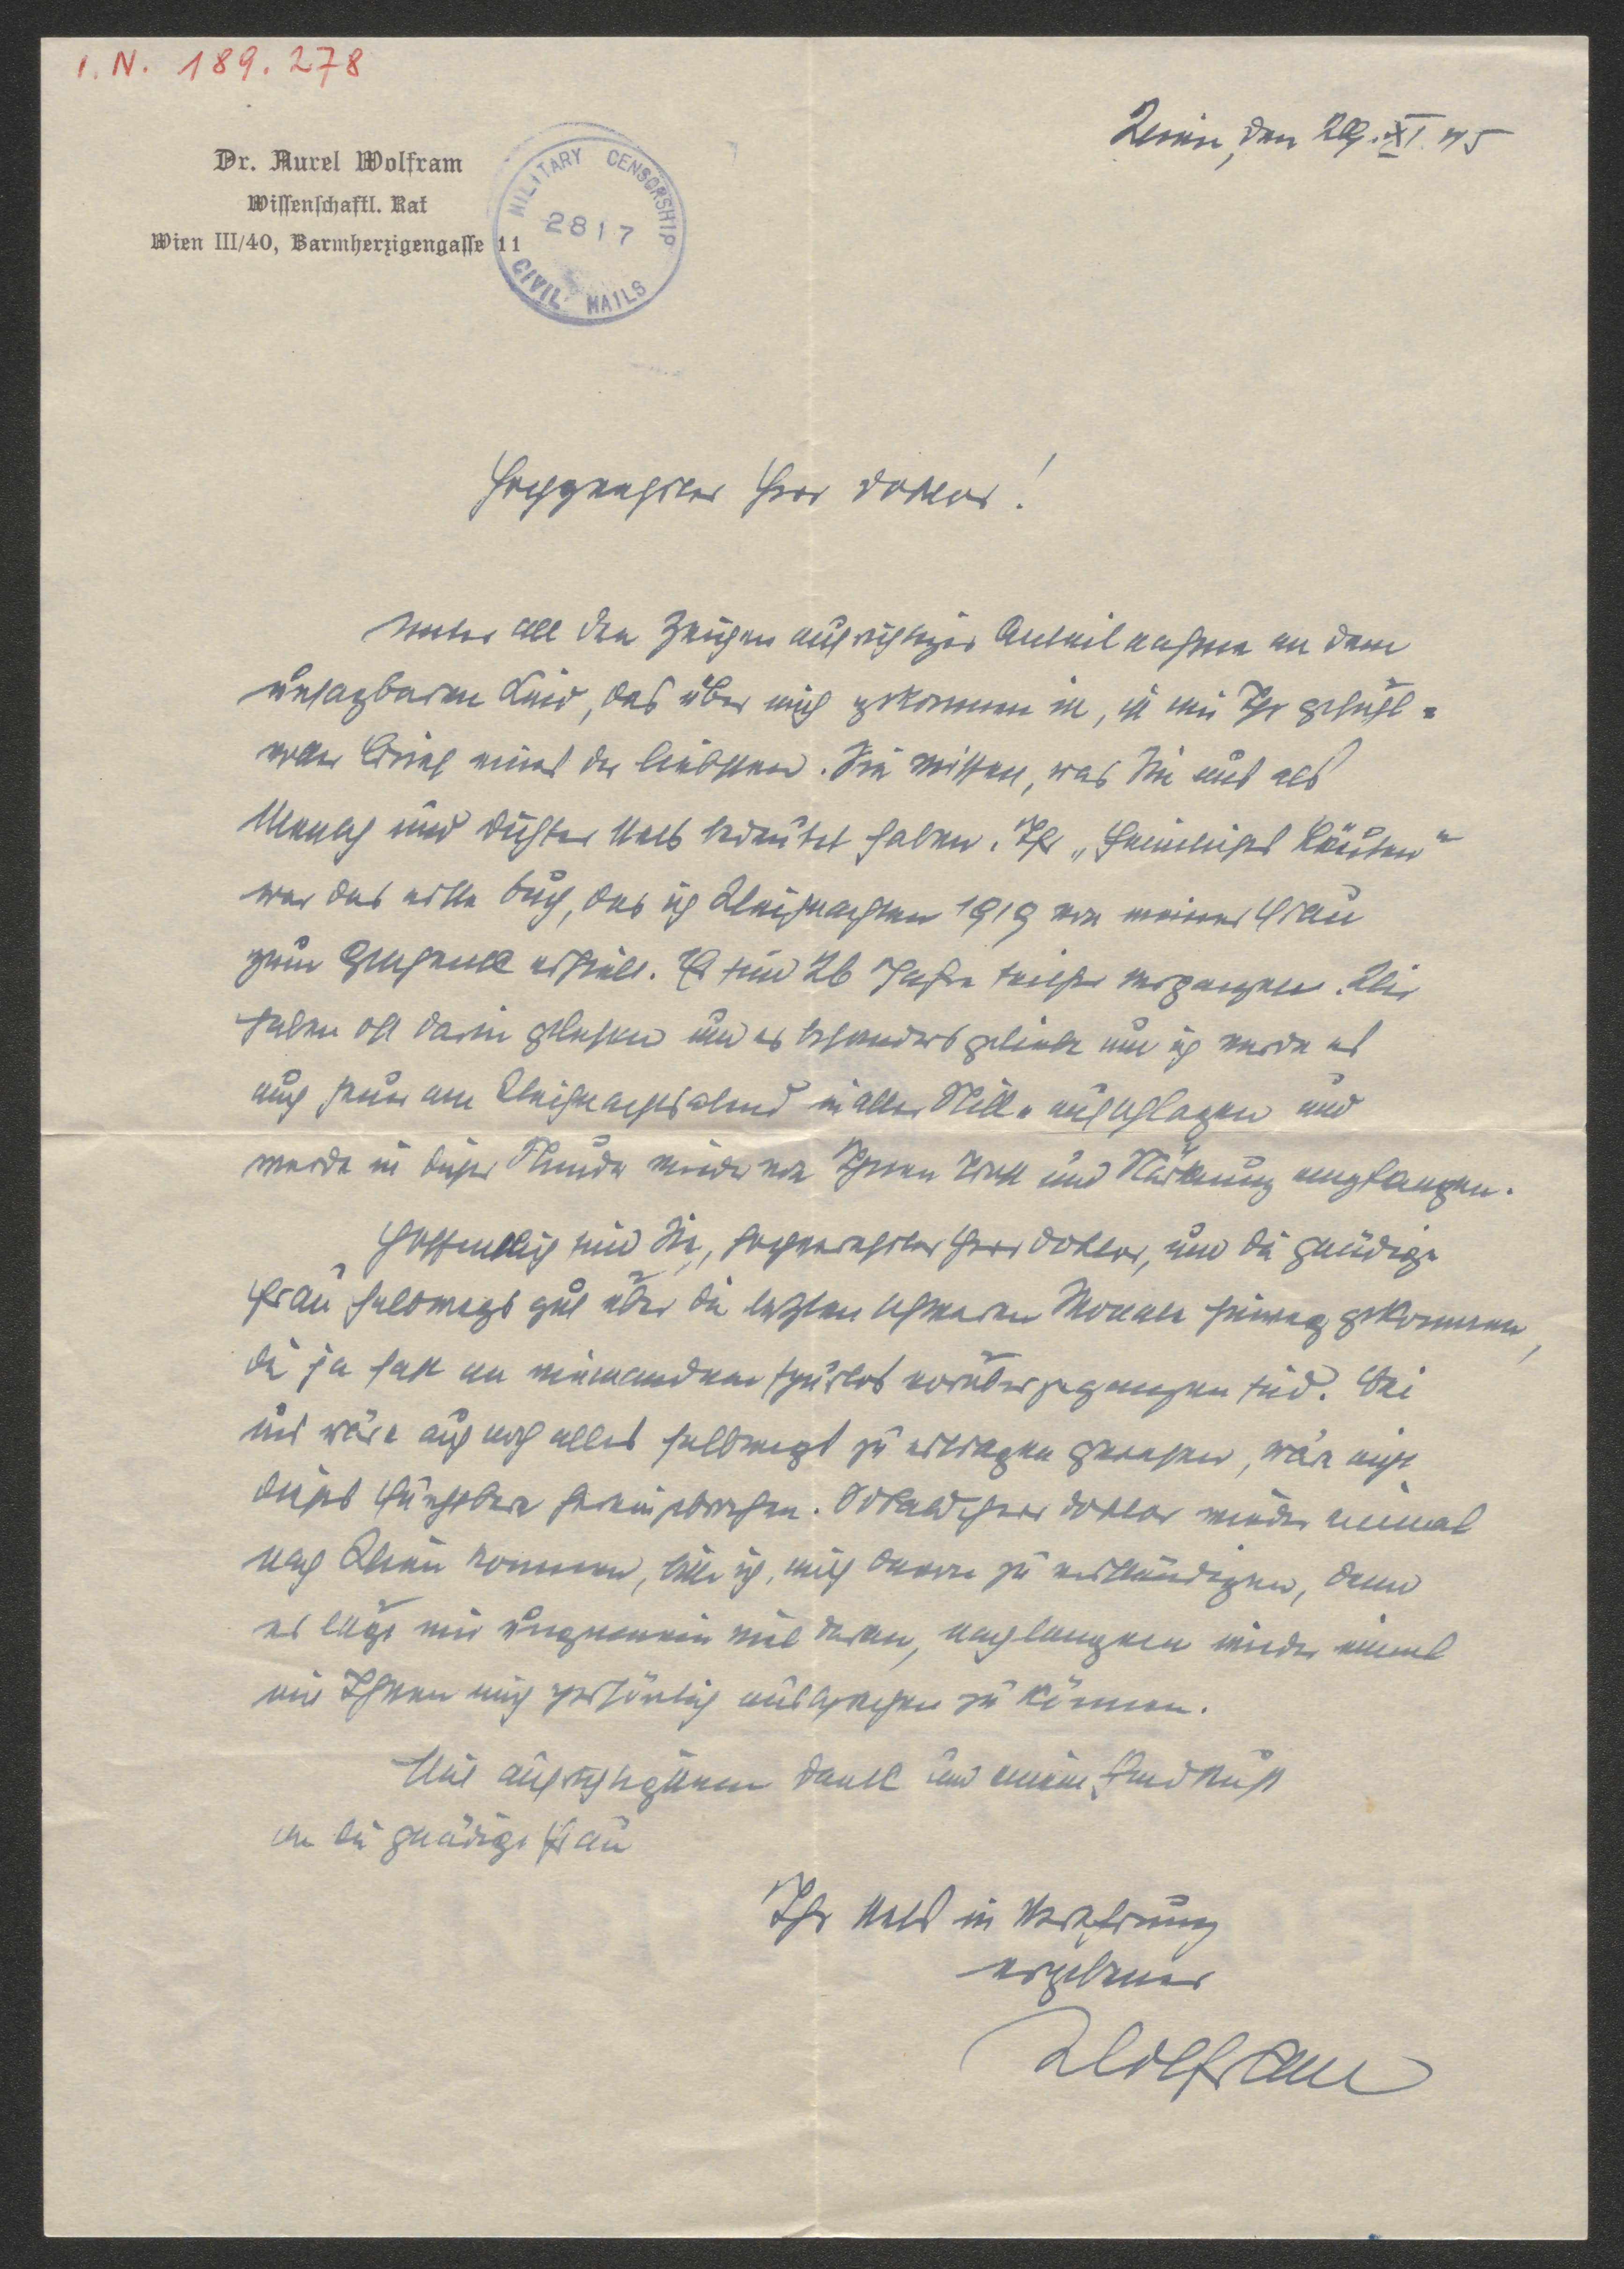 I. N. 189.278
Wien, den 29. XI. 45
Dr. Aurel Wolfram
Wissenschaftl. Rat
Wien III/40, Barmherzigengasse 11
MILITARY CENSORSHIP
2817
CIVIL MAILS
Hochverehrter Herr Doktor!
Unter all den Zeugen aufrichtiger Anteilnahme an dem
unsagbaren Leid, das über mich gekommen ist, ist mir Ihr gefühl=
voller Brief eines der liebsten. Sie wissen, was Sie uns als
Mensch und Dichter stets bedeutet haben. Ihr „Heimliches Läuten“
war das erste Buch, das ich Weihnachten 1919 von meiner Frau
zum Geschenk erhielt. Es sind 26 Jahre seither vergangen. Wir
haben oft darin gelesen und es besonders geliebt und ich werde es
auch heuer am Weihnachtsabend in aller Stille aufschlagen und
werde in dieser Stunde wieder von Ihnen Trost und Stärkung empfangen.
Hoffentlich sind Sie, hochverehrter Herr Doktor, und die gnädige
Frau halbwegs gut über die letzten schweren Monate hinweg gekommen,
die ja fast an niemandem spurlos vorübergegangen sind. Bei
uns wäre auch noch alles halbwegs zu ertragen gewesen, wäre nicht
dieses Furchtbare hereingebrochen. Sobald Herr Doktor wieder einmal
nach Wien kommen, bitte ich, mich davon zu verständigen, denn
es läge mir ungemein viel daran, nach langem wieder einmal
mit Ihnen mich persönlich aussprechen zu können.
Mit aufrichtigstem Dank und einem Handkuß
an die gnädige Frau
Ihr stets in Verehrung
ergebener
Wolfram